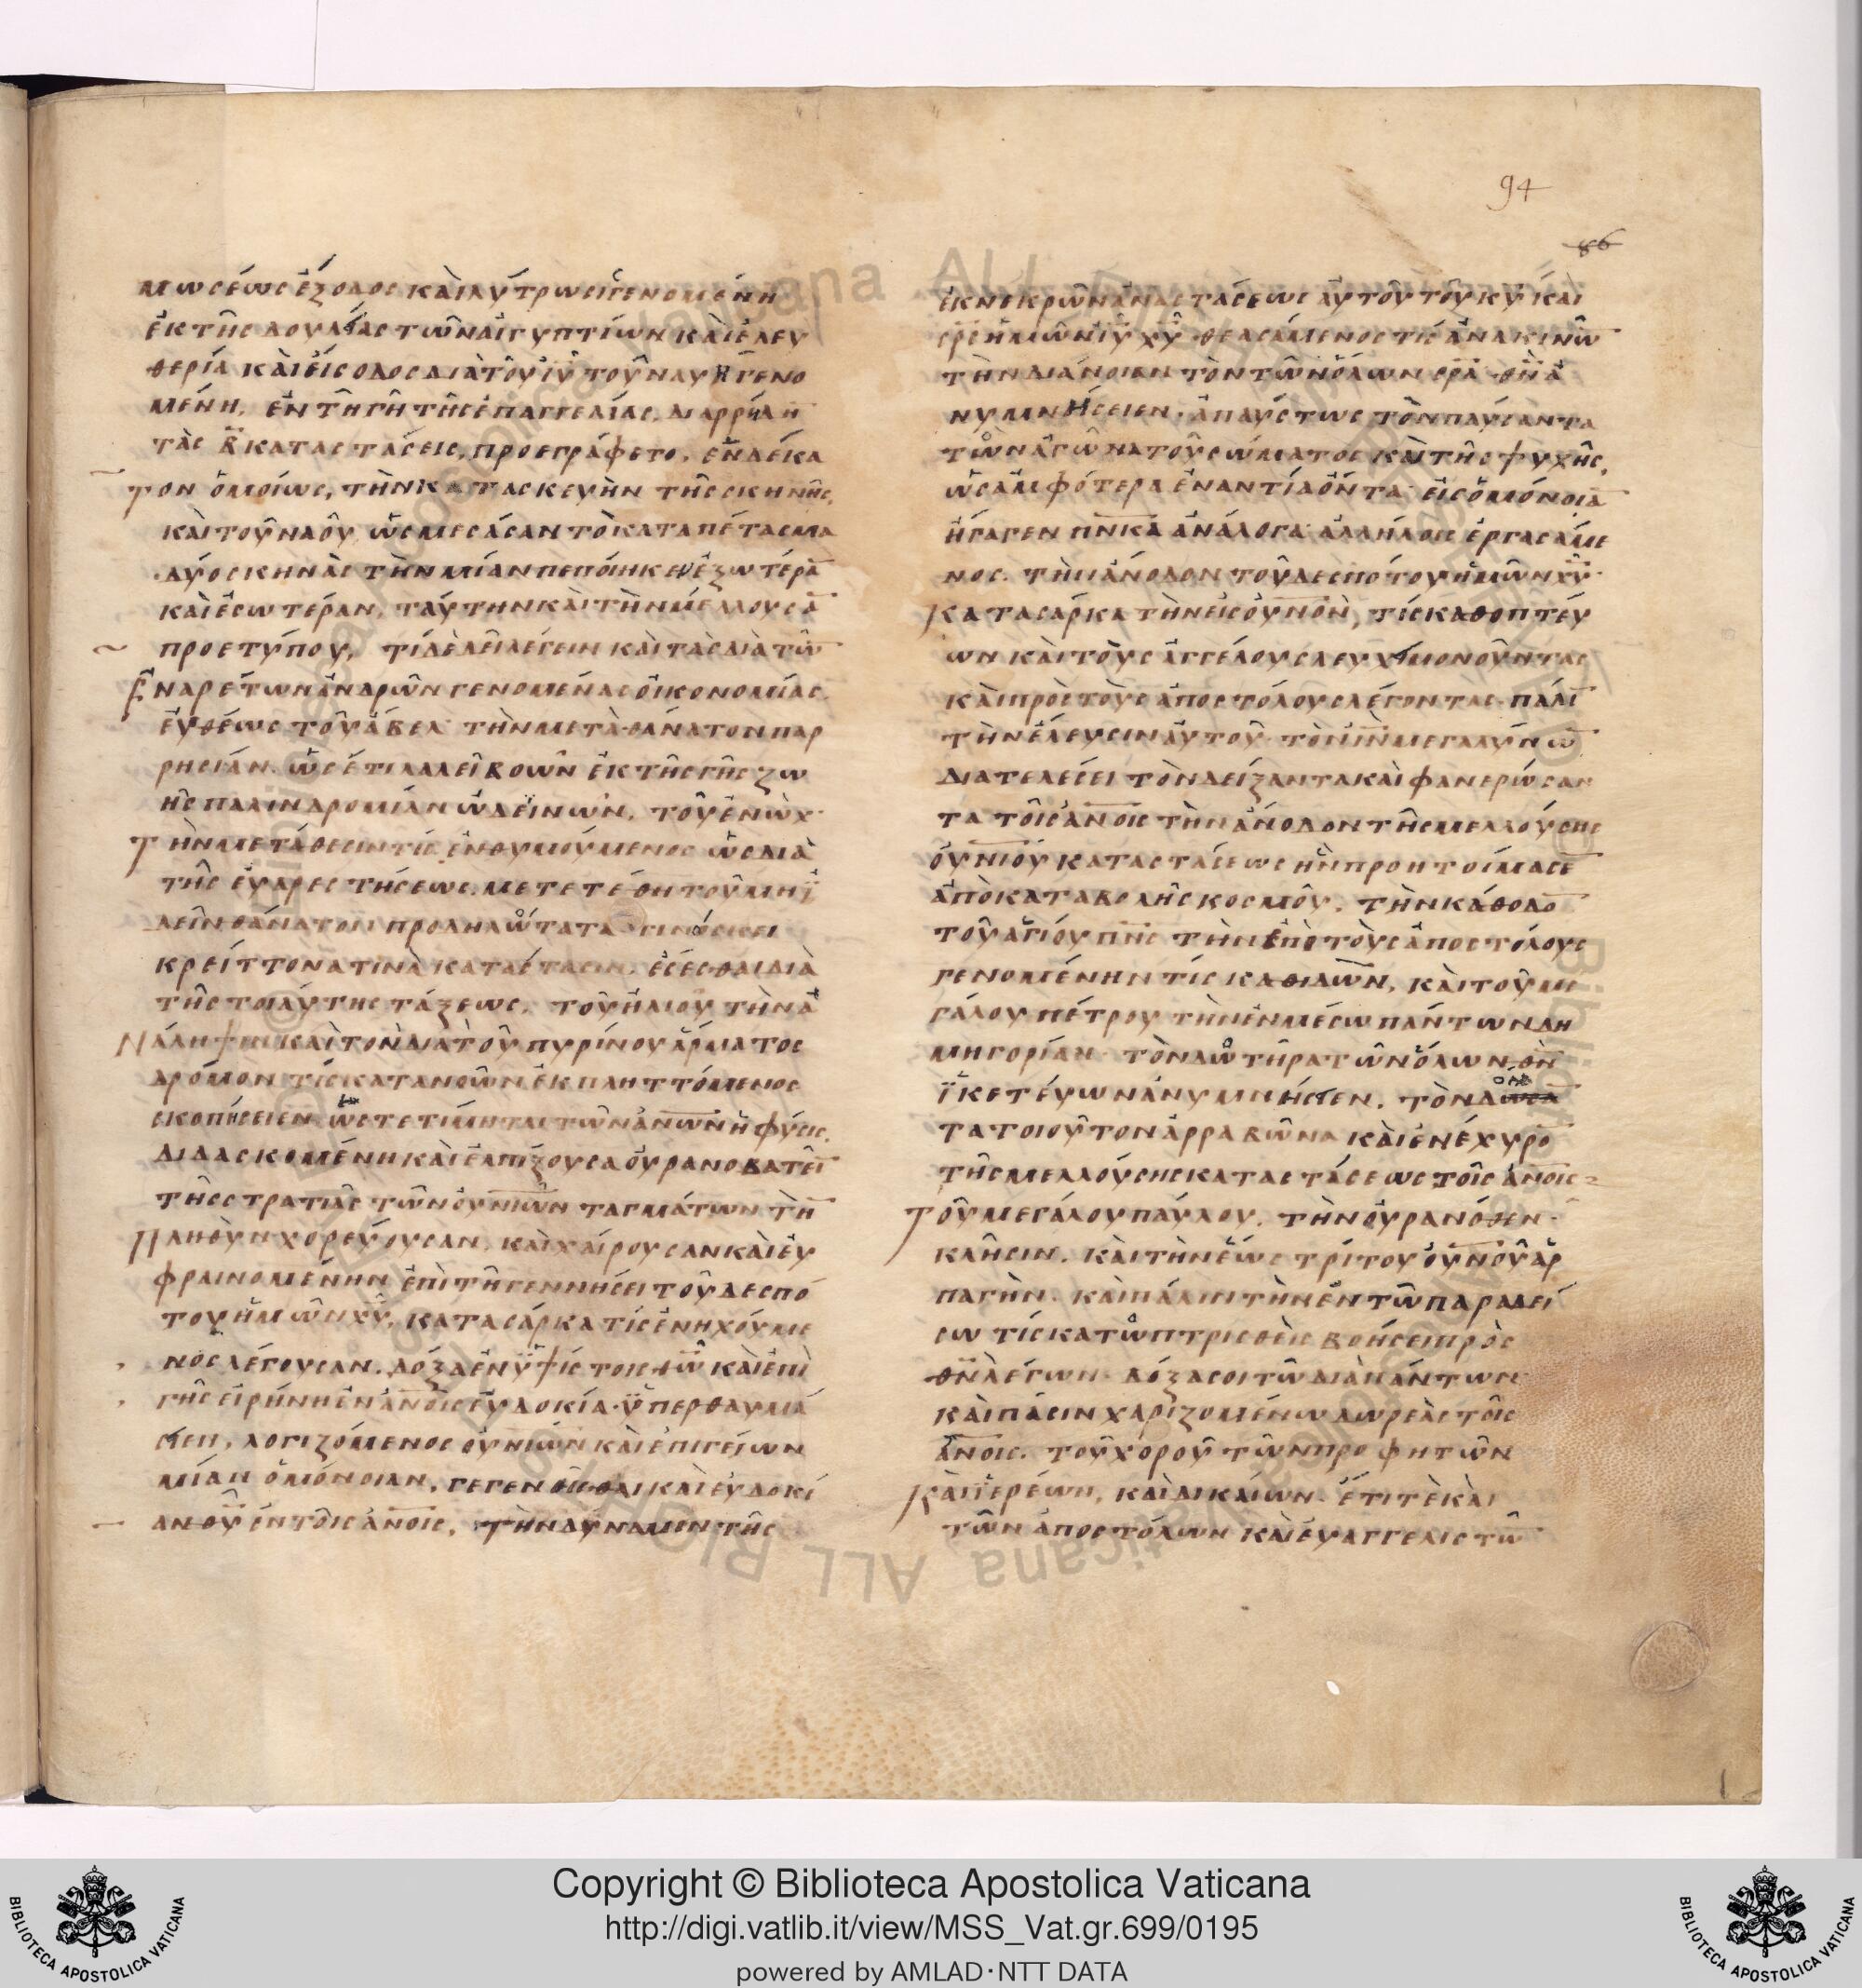 94
86
μωσέως ἔξοδος καὶ λύτρωσις γενομένη
ἐκ τῆς δουλείας τῶν αἰγυπτίων καὶ ἐλευ
θερία καὶ εἴσοδος διὰ τοῦ ἰῦ τοῦ ναυῆ γενο
μένη, ἐν τῇ γῇ τῆς ἐπαγγελίας, διαρρήδη
τὰς β̄ καταστάσεις, προεγράφετο, ἐνδείκα
τον ὁμοίως, τὴν κατασκευὴν τῆς σκηνῆς,
καὶ τοῦ ναοῦ, ὡς μεσάσαν τὸ καταπέτασμα
δύο σκηνὰς τὴν μίαν πεποίηκεν ἐξωτέρα
καὶ ἐσωτέραν, ταύτην καὶ τὴν μέλλουσα
προετύπου, τί δὲ δεῖ λέγειν καὶ τὰς διὰ τῶ
ἐναρέτων ἀνδρῶν γενομένας οἰκονομίας,
εὐθέως τοῦ ἄβελ τὴν μετὰ θάνατον παρ
ρησίαν ὡς ἔτι λαλεῖ βοῶν ἐκ τῆς γῆς ζω
ῆς παλινδρομίαν ὠδείνων, τοῦ ἐνὼχ
τὴν μετάθεσιν τίς ἐνθυμούμενος ὡς διὰ
τῆς εὐαρεστήσεως, μετετέθη τοῦ μὴ ἰ
δεῖν θάνατον προδηλώτατα γινώσκει
κρείττονα τινὰ κατάστασιν, ἔσεσθαι διὰ
τῆς τοιαύτης τάξεως, τοῦ ἡλιοῦ τὴν ἀ
νάληψιν καὶ τὸν διὰ τοῦ πυρίνου ἅρματος
δρόμον τίς κατανοῶν ἐκπληττόμενος
σκοπήσειεν ὡς τετίμηται τῶν ἀνων ἡ φύσις,
διδασκομένη καὶ ἐλπίζουσα οὐρανοβατεῖ
τῆς στρατιᾶς τῶν οὐνίων ταγμάτων τὴ
πληθὺν χορεύουσαν, καὶ χαίρουσαν καὶ εὐ
φραινομένην ἐπὶ τῇ γεννήσει τοῦ δεσπό
του ἡμῶν χῦ, κατα σάρκα τίς ἐνηχούμε
νος λέγουσαν, δόξα ἐν ὑψίστοις θῶ καὶ ἐπὶ
γῆς εἰρήνη ἐν ἀνοις εὐδοκία ὑπερθαυμά
σειεν, λογιζόμενος οὐνίων καὶ ἐπιγείων
μίαν ὁμόνοιαν, γεγενῆσθαι καὶ εὐδοκί
αν θῦ ἐν τοῖς ἀνοις, τὴν δύναμιν τῆς
ἐκ νεκρῶν ἀναστάσεως αὐτοῦ τοῦ κῦ καὶ
σρς ἡμῶν ἰῦ χῦ θεασάμενος τίς ἀνακινῶ
τὴν διάνοιαν τὸν τῶν ὅλων σρα θν ἀ
νυμνήσειεν, ἀπαύστως τὸν παύσαντα
τῶν ἀγῶνα τοῦ σώματος καὶ τῆς ψυχῆς,
ὡς ἀμφότερα ἐναντία ὄντα εἰς ὁμόνοια
ἤγαγεν πνικα ἀνάλογα ἀλλήλοις ἐργασάμε
νος. τὴν ἄνοδον τοῦ δεσπότου ἡμῶν χῦ
κατα σάρκα τὴν εἰς οὐνὸν, τίς κατοπτεύ
ων καὶ τοὺς ἀγγέλους λευχιμονοῦντας
καὶ πρὸς τοὺς ἀποστόλους λέγοντας πάλι
τὴν ἔλευσιν αὐτοῦ
διατελέσει τὸν δείξαντα καὶ φανερώσαν
τα τοῖς ἀνοις τὴν ἄνοδον τῆς μελλούσης
οὐνίου καταστάσεως ἣν προητοίμασε
ἀπὸ καταβολῆς κόσμου, τὴν κάθοδο
τοῦ ἁγίου πνς τὴν ἐπὶ τοὺς ἀποστόλους
γενομένην τίς καθιδὼν, καὶ τοῦ με
γάλου πέτρου τὴν ἐν μέσω πάντων δη
μηγορίαν τὸν δωτῆρα τῶν ὅλων θν
ἱκετεύων ἀνυμνήσειεν, τὸν δωσα
τα τοιοῦτον ἀρραβῶνα καὶ ἐνέχυρο
τῆς μελλούσης καταστάσεως τοῖς ἀνοις
τοῦ μεγάλου παύλου, τὴν οὐρανόθεν
κλῆσιν, καὶ τὴν ἕως τρίτου οὐνοῦ ἁρ
παγὴν, καὶ πάλιν τὴν ἐν τῶ παραδεί
σω τίς κατωπτρισθεὶς βοήσει πρὸς
θν λέγων δόξα σοι τῶ διαπάντως
καὶ πάσιν χαριζομένω δωρεὰς τοῖς
ἀνοις. τοῦ χοροῦ τῶν προφητῶν
καὶ ἱερέων, καὶ δικαίων ἔτι τὲ καὶ
τῶν ἀποστόλων καὶ εὐαγγελιστῶ
Copyright © Biblioteca Apostolica Vaticana
http://digi.vatlib.it/view/MSS_Vat.gr.699/0195
powered by AMLAD·NTT DATA
BIBLIOTECA APOSTOLICA VATICANA
BIBLIOTECA APOSTOLICA VATICANA